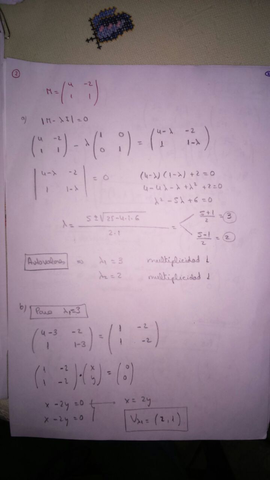 ①
M = (4 -2; 1 1)
a) |M - λI| = 0
(4 -2; 1 1) - λ (1 0; 0 1) = (4-λ -2; 1 1-λ)
|4-λ -2; 1 1-λ| = 0
(4-λ)(1-λ)+2 = 0
4-4λ-λ+λ²+2=0
λ²-5λ+6=0
λ = (5±√25-4·1·6)/(2·1) = 5+1/2 = 3
5±1/2 = 2
Autovalores ⇒ λ₁ = 3 multiplicidad 1
λ₂ = 2 multiplicidad 1
b) Para λ₁=3
(4-3 -2; 1 1-3) = (1 -2; 1 -2)
(1 -2; 1 -2) · (x; y) = (0; 0)
x-2y=0 → x = 2y
x-2y=0
= (2,1)